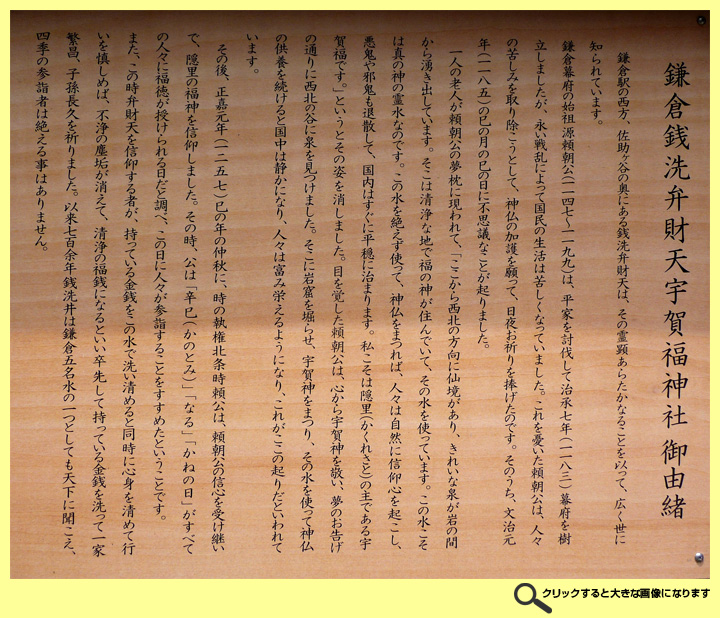 鎌倉銭洗弁財天宇賀福神社 御由緒
鎌倉駅の西方、佐助ヶ谷の奥にある銭洗弁財天は、その霊顕あらたかなることを以って、広く世に
知られています。
鎌倉幕府の始祖源頼朝公(一一四七〜一一九九)は、平家を討伐して治承七年(一一八三)幕府を樹
立しましたが、永い戦乱によって国民の生活は苦しくなっていました。これを憂いた頼朝公は、人々
の苦しみを取り除こうとして、神仏の加護を願って、日夜お祈りを捧げたのです。そのうち、文治元
年(一一八五)の巳の月の巳の日に不思議なことが起りました。
一人の老人が頼朝公の夢枕に現われて、「ここから西北の方向に仙境があり、きれいな泉が岩の間
から湧き出しています。そこは清浄な地で福の神が住んでいて、その水を使っています。この水こそ
は真の神の霊水なのです。この水を絶えず使って、神仏をまつれば、人々は自然に信仰心を起こし、
悪鬼や邪鬼も退散して、国内はすぐに平穏に治まります。私こそは隠里(かくれざと)の主である宇
賀福です。」というとその姿を消しました。目を覚した頼朝公は、心から宇賀神を敬い、夢のお告げ
の通りに西北の谷に泉を見つけました。そこに岩窟を掘らせ、宇賀神をまつり、その水を使って神仏
の供養を続けると国中は静かになり、人々は富み栄えるようになり、これがここの起りだといわれて
います。
その後、正嘉元年(一二五七)巳の年の仲秋に、時の執権北条時頼公は、頼朝公の信心を受け継い
で、隠里の福神を信仰しました。その時、公は「辛巳(かのとみ)」「なる」「かねの日」がすべて
の人々に福徳が授けられる日だと調べ、この日に人々が参詣することをすすめたということです。
また、この時弁財天を信仰する者が、持っている金銭をこの水で洗い清めると同時に心身を清めて行
いを慎しめば、不浄の塵垢が消えて、清浄の福銭になるといい卒先して持っている金銭を洗って一家
繁昌、子孫長久を祈りました。以来七百余年銭洗井は鎌倉五名水の一つとしても天下に聞こえ、
四季の参詣者は絶える事はありません。
クリックすると大きな画像になります